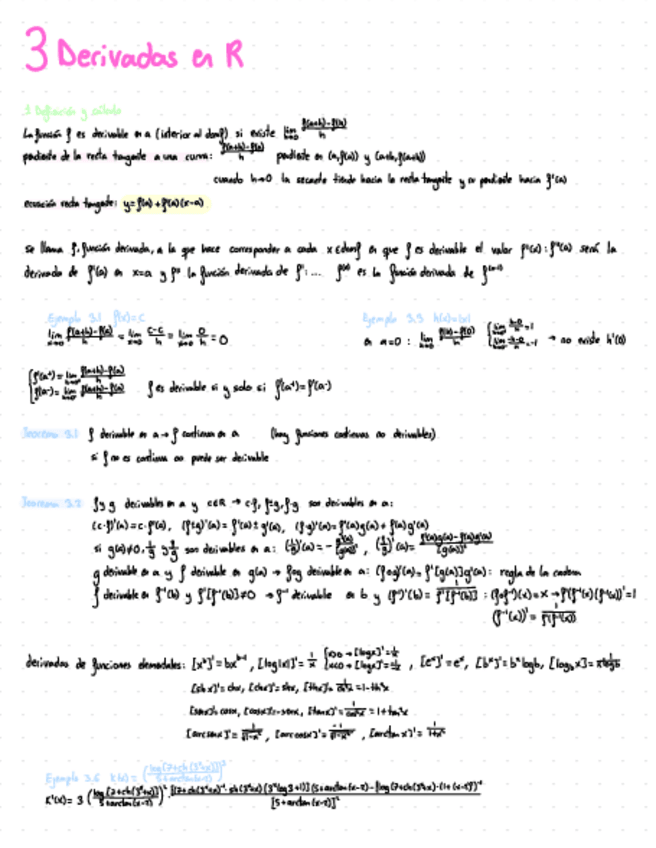 3 Derivadas en R
.1 Definición y cálculo
La función f es derivable en a (interior al domf) si existe lim h→0 f(a+h)-f(a)/h
pendiente de la recta tangente a una curva: f(a+h)-f(a)/h pendiente en (a,f(a)) y (a+h,f(a+h))
cuando h→0 la secante tiende hacia la recta tangente y su pendiente hacia f'(a)
ecuación recta tangente: y=f(a)+f'(a)(x-a)
se llama f' función derivada, a la que hace corresponder a cada x∈domf en que f es derivable el valor f'(x): f''(a) será la
derivada de f'(a) en x=a y f'' la función derivada de f':... f⁽ⁿ⁾ es la función derivada de f⁽ⁿ⁻¹⁾
Ejemplo 3.1 f(x)=c
Ejemplo 3.3 h(x)=|x|
lim f(a+h)-f(a)/h = lim c-c/h = lim 0/h = 0
en a=0: → no existe h'(0)
f es derivable si y solo si f'(a⁺)=f'(a⁻)
Teorema 3.1 f derivable en a → f continua en a (hay funciones continuas no derivables)
si f no es continua no puede ser derivable
Teorema 3.2 f y g derivables en a y c∈R → c·f, f±g, f·g son derivables en a:
(c·f)'(a)=c·f'(a), (f±g)'(a)=f'(a)±g'(a), (f·g)'(a)=f'(a)g(a)+f(a)g'(a)
si g(a)≠0, 1/g y f/g son derivables en a: (1/g)'(a)=-g'(a)/[g(a)]², (f/g)'(a)=f'(a)g(a)-f(a)g'(a)/[g(a)]²
g derivable en a y f derivable en g(a) → fog derivable en a: (fog)'(a)=f'[g(a)]g'(a): regla de la cadena
f derivable en f⁻¹(b) y f'[f⁻¹(b)]≠0 → f⁻¹ derivable en b y (f⁻¹)'(b)=1/f'[f⁻¹(b)] : (fof⁻¹)(x)=x → f'(f⁻¹(x)(f⁻¹(x))'=1
(f⁻¹(x))'=1/f'(f⁻¹(x))
derivadas de funciones elementales: [xᵇ]'=bxᵇ⁻¹, [log|x|]'=1/x , [eˣ]'=eˣ, [bˣ]'=bˣlogb, [log_b x]=1/xlogb
[shx]'=chx, [chx]'=shx, [thx]'=1/ch²x=1-th²x
[senx]'=cosx, [cosx]'=-senx, [tanx]'=1/cos²x=1+tan²x
[arcsenx]'=1/√1-x², [arccosx]'=-1/√1-x², [arctanx]'=1/1+x²
Ejemplo 3.6 k(x)=
k'(x)= 3